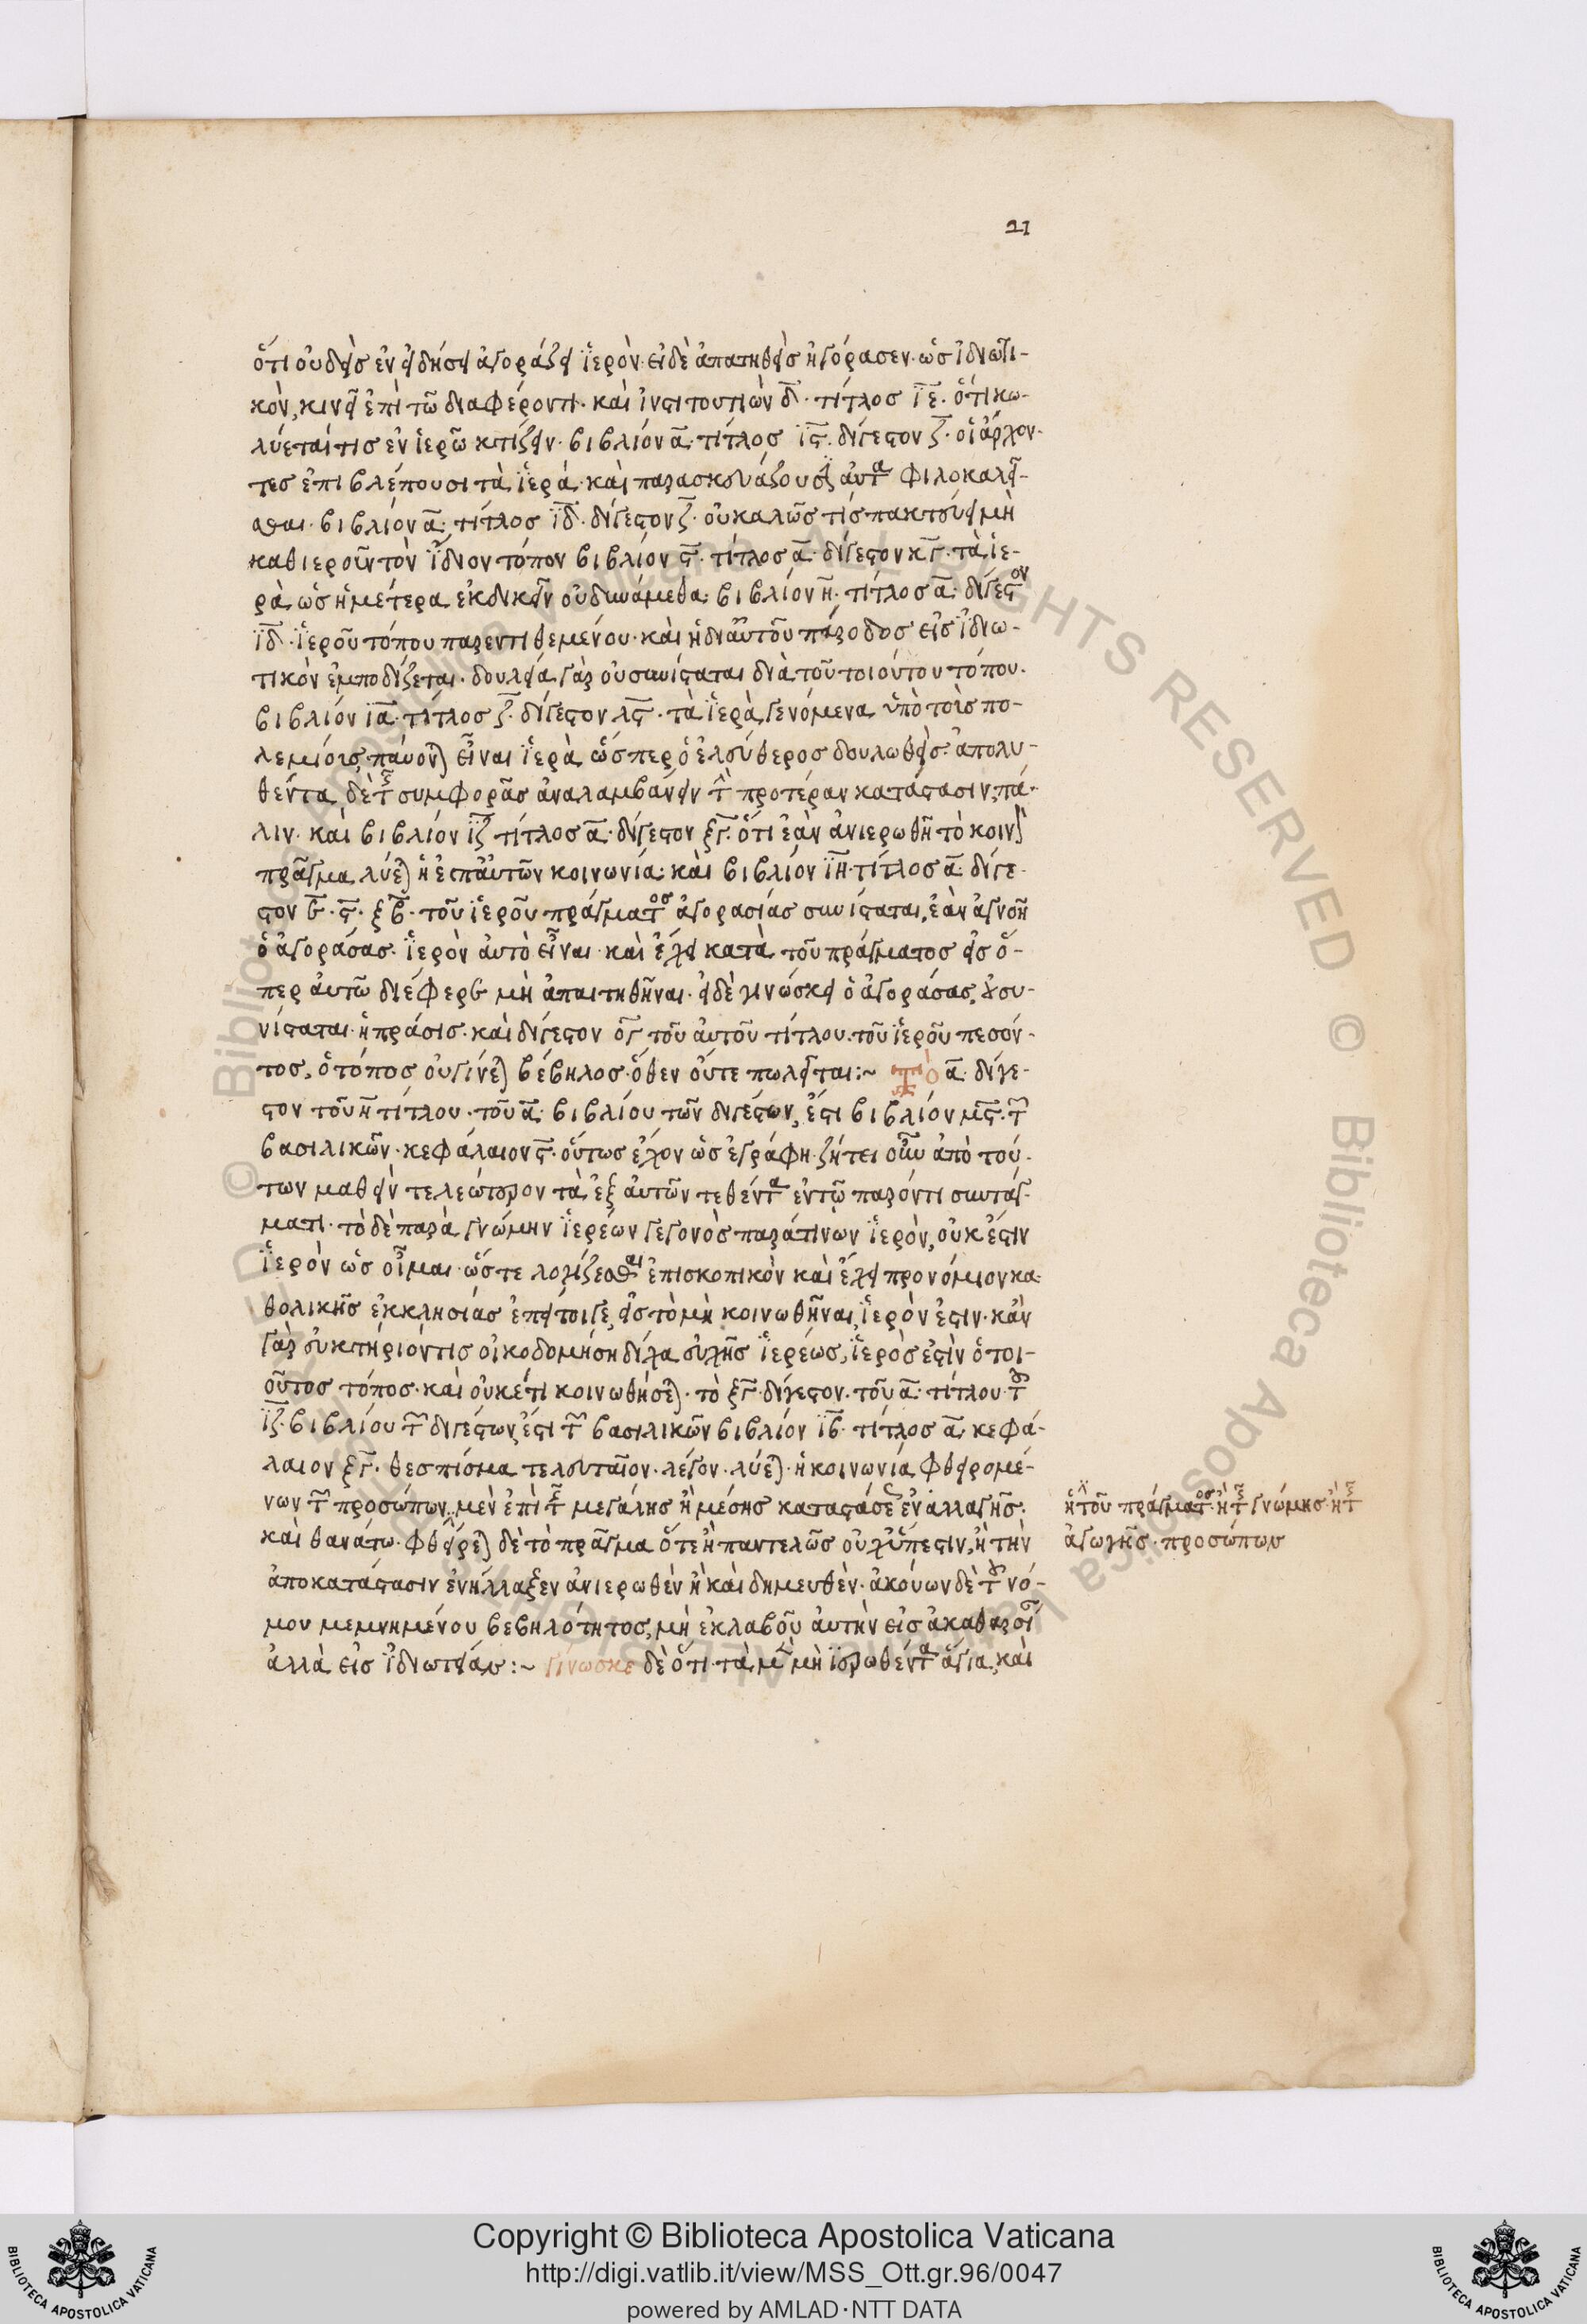 21
ὅτι οὐδεὶς ἐν εἰδήσει ἀγοράζει ἱερόν· εἰ δὲ ἀπατηθεὶς ἠγόρασεν· ὡς ἰδιωτι-
κὸν, κινεῖ ἐπὶ τῶ διαφέροντι· καὶ ἰνστιτουτιὼν δ̅· τίτλος ϊε̅· ὅτι κω-
λύεταί τις ἐν ἱερῶ κτίζειν· βιβλίον α̅· τίτλος ϊϛ̅· δίγεστον ζ̅· οἱ ἄρχον-
τες ἐπιβλέπουσι τὰ ἱερά· καὶ παρασκευάζουσιν αὐτὰ φιλοκαλεῖ-
σθαι· βιβλίον α̅· τίτλος ϊδ̅· δίγεστον ζ̅· οὐ καλῶς τίς πακτεύει μὴ
καθιεροῦν τὸν ἴδιον τόπον βιβλίον ϛ̅· τίτλος α̅· δίγεστον κγ̅· τὰ ἱε-
ρὰ ὡς ἡμέτερα ἐκδικεῖν οὐ δυνάμεθα· βιβλίον η̅· τίτλος α̅· δίγεστον
ϊδ̅· ἱεροῦ τόπου παρεντιθεμένου· καὶ ἡ δι αὐτοῦ πάροδος εἰς ἰδιω-
τικὸν ἐμποδίζεται· δουλεία γὰρ οὐ συνίσταται διὰ τοῦ τοιούτου τόπου·
βιβλίον ϊα̅· τίτλος ζ̅· δίγεστον λϛ̅· τὰ ἱερὰ γενόμενα ὑπὸ τοῖς πο-
λεμίοις, παύονται εἶναι ἱερὰ ὥσπερ ὁ ἐλεύθερος δουλωθείς· ἀπολυ-
θέντα δὲ τῆς συμφορᾶς ἀναλαμβάνειν τὴν προτέραν κατάστασιν, πά-
λιν· καὶ βιβλίον ϊζ̅ τίτλος α̅· δίγεστον ξγ̅· ὅτι ἐὰν ἀνιερωθῆ τὸ κοινὸν
πρᾶγμα λύεται ἡ ἐπ αὐτῶν κοινωνία· καὶ βιβλίον ϊη̅· τίτλος α̅· δίγε-
στον δ̅· ϛ̅· ξβ̅· τοῦ ἱεροῦ πράγματος ἀγορασίας συνίσταται, ἐὰν ἀγνοῆ
ὁ ἀγοράσας· ἱερὸν αὐτὸ εἶναι· καὶ ἔχει κατὰ τοῦ πράγματος εἰς ὅ-
περ αὐτῶ διέφερε μὴ ἀπαιτηθῆναι· εἰ δὲ γινώσκει ὁ ἀγοράσας, οὐ συ-
νίσταται· ἡ πράσις· καὶ δίγεστον ογ̅ τοῦ αὐτοῦ τίτλου· τοῦ ἱεροῦ πεσόν-
τος, ὁ τόπος οὐ γίνεται βέβηλος· ὅθεν οὔτε πωλεῖται:~ τὸ α̅· δίγε-
στον τοῦ η̅ τίτλου· τοῦ α̅· βιβλίου τῶν διγέστων, ἐστὶ βιβλίον μϛ̅· τῶν
βασιλικῶν· κεφάλαιον ϛ̅· οὕτως ἔχον ὡς ἐγράφη· ζήτει οὖν ἀπὸ τού-
των μαθεῖν τελεώτερον τὰ ἐξ αὐτῶν τεθέντα ἐν τῶ παρόντι συντάγ-
ματι· τὸ δὲ παρὰ γνώμην ἱερέων γεγονὸς παρά τινων ἱερὸν, οὐκ ἔστιν
ἱερὸν ὡς οἶμαι· ὥστε λογίζεσθαι ἐπισκοπικὸν καὶ ἔχει προνόμιον κα-
θολικῆς ἐκκλησίας ἐπεί τοιγε, εἰς τὸ μὴ κοινωθῆναι, ἱερὸν ἐστιν· κἂν
γὰρ εὐκτήριόν τις οἰκοδομήση δίχα εὐχῆς ἱερέως, ἱερὸς ἐστὶν ὁ τοι-
οῦτος τόπος· καὶ οὐκέτι κοινωθήσεται· τὸ ξγ̅· δίγεστον· τοῦ α̅· τίτλου τοῦ
ϊζ̅· βιβλίου τῶν διγέστων, ἐστὶ τῶν βασιλικῶν βιβλίον ϊβ̅· τίτλος α̅· κεφά-
λαιον ξγ̅· θεσπίσμα τελευταῖον· λέγον· λύεται· ἡ κοινωνία φθειρομέ-
νων τῶν προσώπων, μὲν ἐπὶ τῆς μεγάλης ἢ μέσης καταστάσεως ἐναλλαγῆς·
καὶ θανάτω· φθείρεται δὲ τὸ πρᾶγμα ὅτε ἢ παντελῶς οὐχ ὕπεστιν, ἢ τὴν
ἀποκατάστασιν ἐνήλλαξεν ἀνιερωθὲν ἢ καὶ δημευθέν· ἀκούων δὲ τοῦ νό-
μου μεμνημένου βεβηλότητος, μὴ ἐκλαβοῦ αὐτὴν εἰς ἀκαθαρσίαν
ἀλλὰ εἰς ἰδιωτείας:~ γίνωσκε δὲ ὅτι τὰ μὲν μὴ ἱερωθέντα ἅγια, καὶ
ἢ τοῦ πράγματος· ἢ τῆς γνώμης· ἢ τῆς
ἀγωγῆς· προσώπων
© Biblioteca Apostolica Vaticana ALL RIGHTS RESERVED
Copyright © Biblioteca Apostolica Vaticana
http://digi.vatlib.it/view/MSS_Ott.gr.96/0047
powered by AMLAD·NTT DATA
BIBLIOTECA APOSTOLICA VATICANA
BIBLIOTECA APOSTOLICA VATICANA